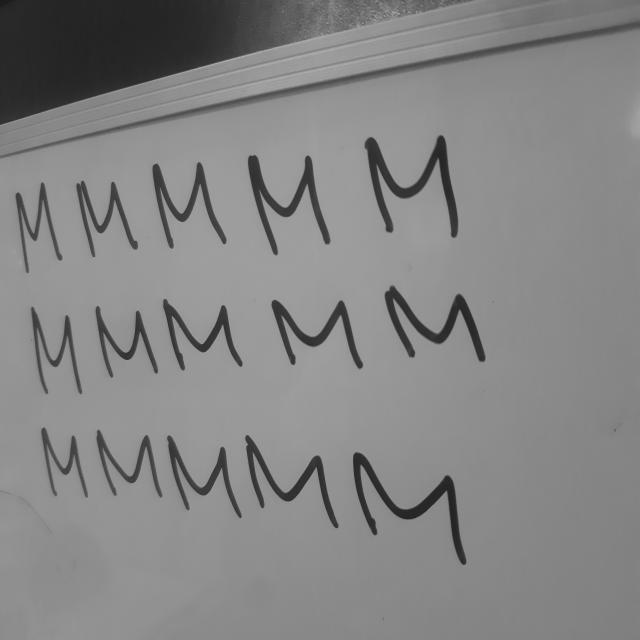 M M M M M
M M M M M
M M M M M